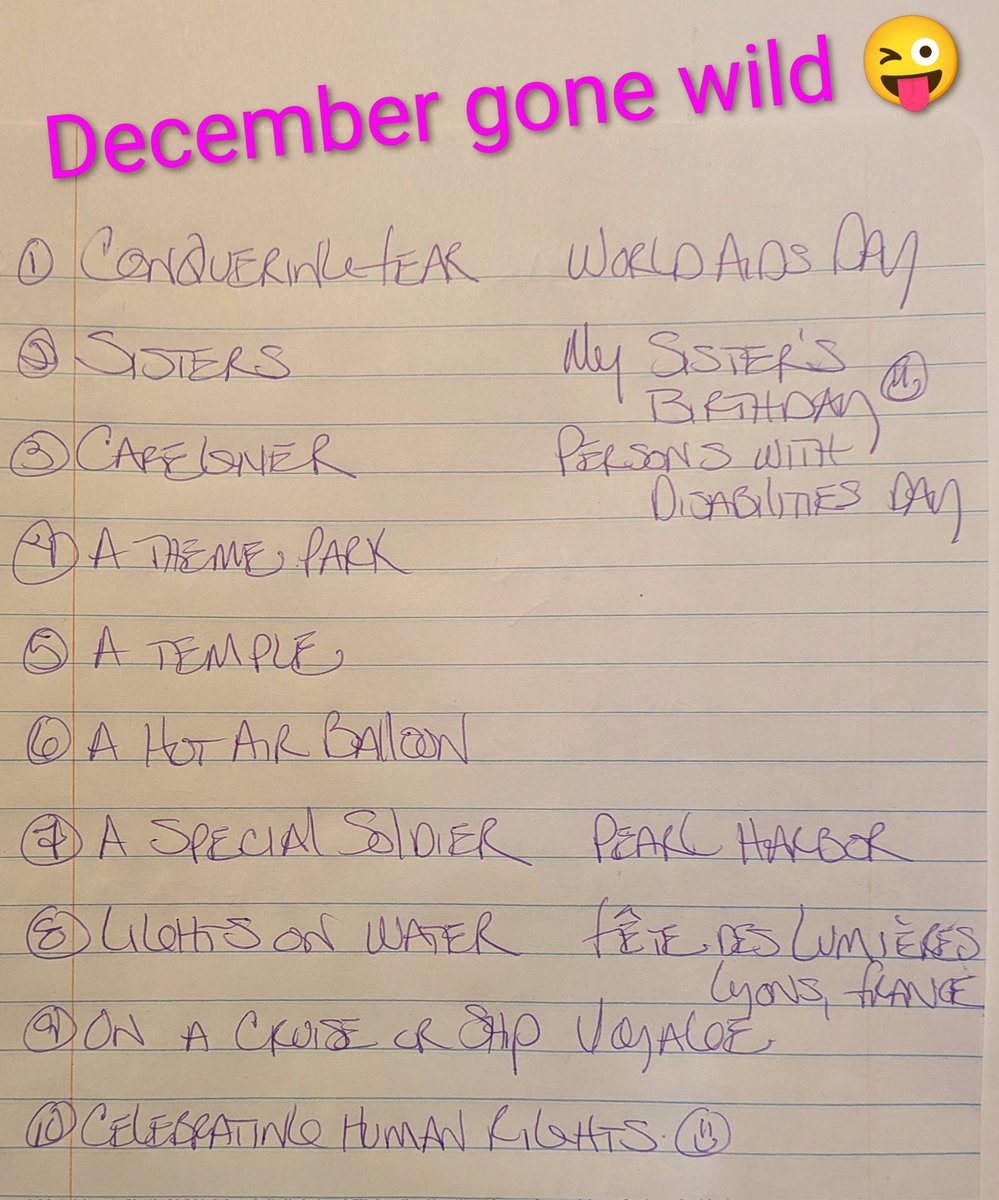 December gone wild 😜
① CONQUERING FEAR WORLD AIDS DAY
② SISTERS My SISTER'S
BIRTHDAY
③ CAREGIVER PERSONS WITH
DISABILITIES DAY
④ A THEME PARK
⑤ A TEMPLE
⑥ A HOT AIR BALLOON
⑦ A SPECIAL SOLDIER PEARL HARBOR
⑧ LIGHTS ON WATER FÊTE DES LUMIÈRES
Lyons, FRANCE
⑨ ON A CRUISE OR SHIP VOYAGE
⑩ CELEBRATING HUMAN RIGHTS.